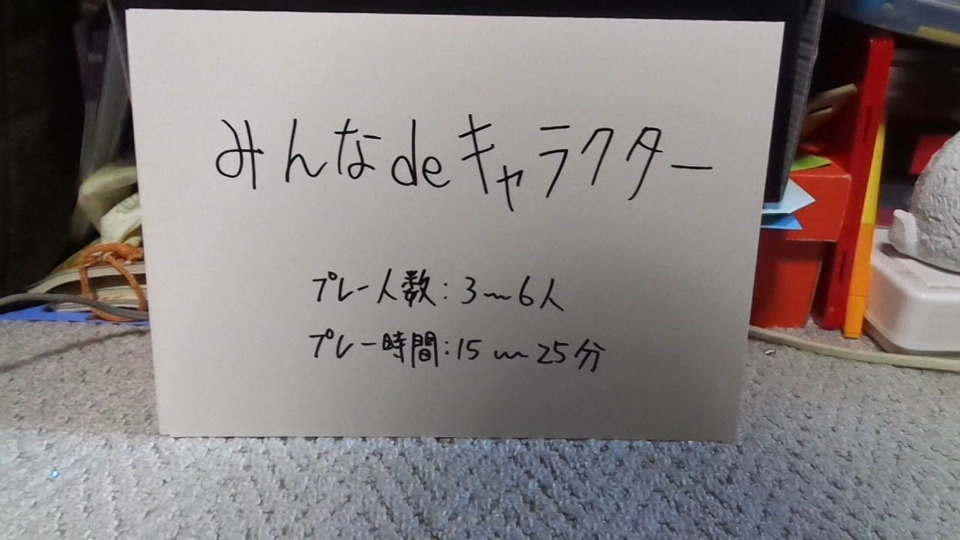 みんなdeキャラクター
プレー人数:3〜6人
プレー時間:15〜25分